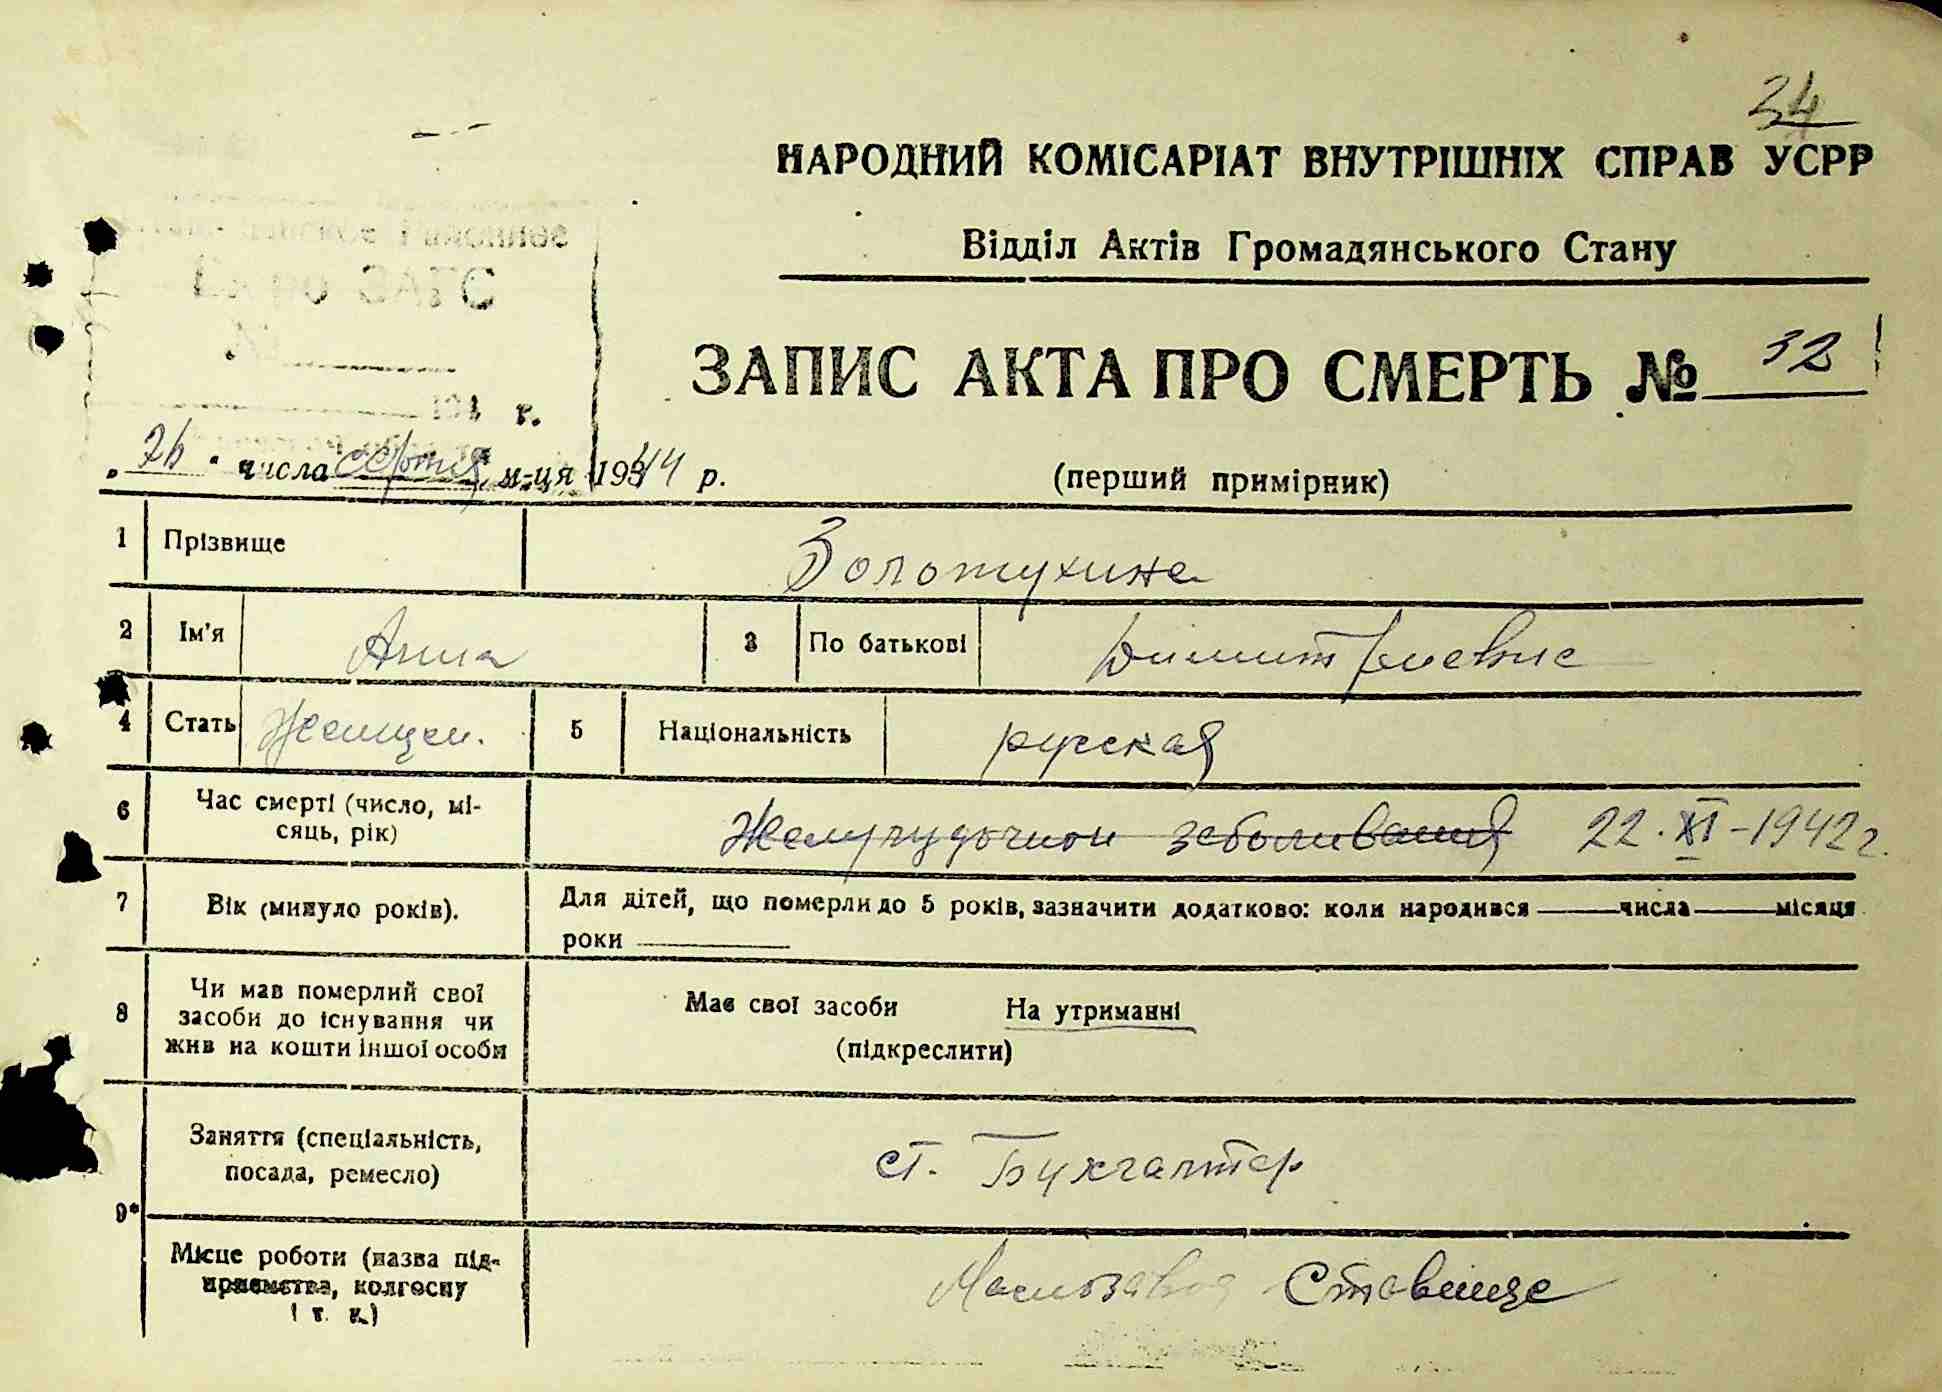 34
НАРОДНИЙ КОМІСАРІАТ ВНУТРІШНІХ СПРАВ УСРР
Відділ Актів Громадянського Стану
Бюро ЗАГС
194 г.
ЗАПИС АКТА ПРО СМЕРТЬ № 32
числа м-ця 1944 р.
(перший примірник)
1 Прізвище Золотухина
2 Ім'я Анна 3 По батькові Димитриевна
4 Стать Женщен. 5 Національність русская
6 Час смерті (число, мі-
сяць, рік) 22.XI-1942 г.
7 Вік (минуло років). Для дітей, що померли до 5 років, зазначити додатково: коли народився ——числа——місяця
роки
8 Чи мав померлий свої
засоби до існування чи
жив на кошти іншої особи
Має свої засоби На утриманні
(підкреслити)
Заняття (спеціальність,
посада, ремесло) ст. Бухгалтер
9*
Місце роботи (назва під-
приємства, колгоспу
і т. і.) Маслозавод Ставище